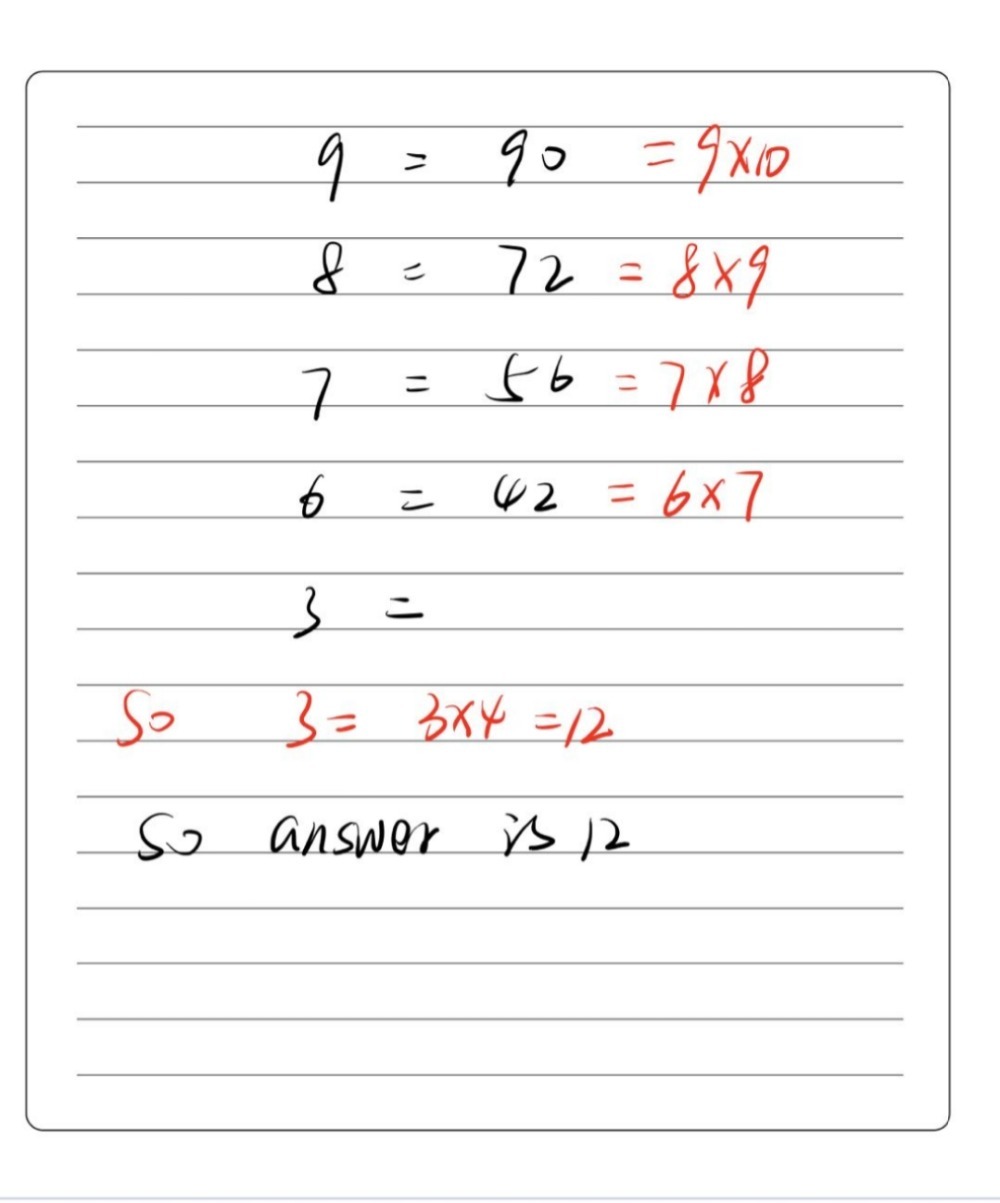 9 = 90 = 9×10
8 = 72 = 8×9
7 = 56 = 7×8
6 = 42 = 6×7
3 =
So 3 = 3×4 = 12
So answer is 12